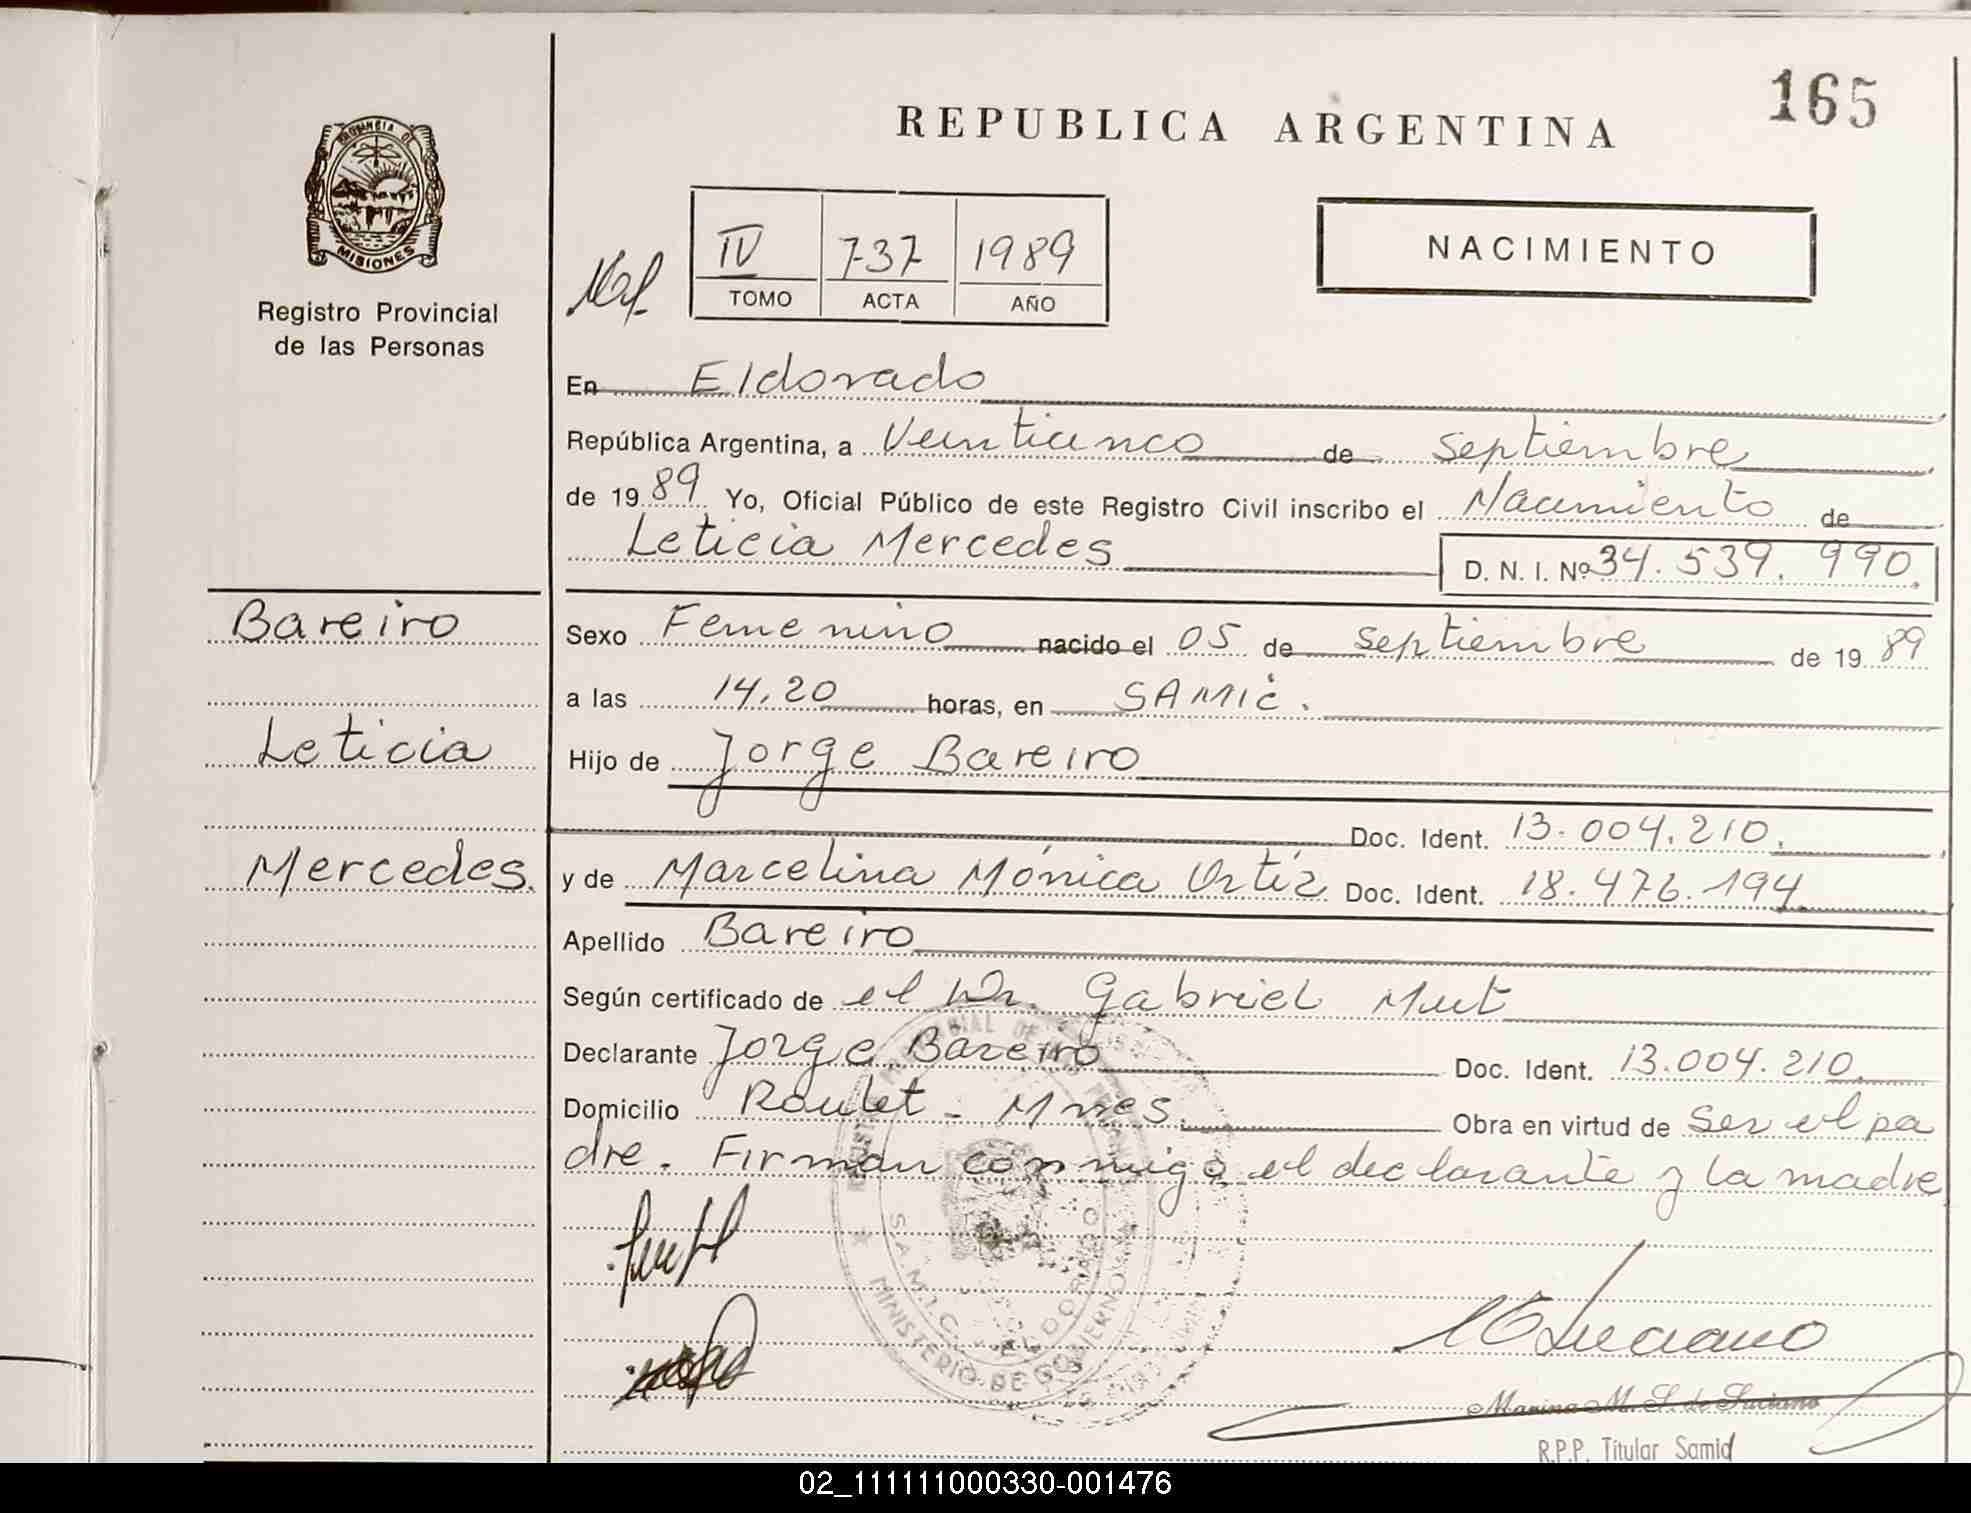 165
REPUBLICA ARGENTINA
PROVINCIA DE
MISIONES
Registro Provincial
de las Personas
IV 737 1989
TOMO ACTA AÑO
NACIMIENTO
En Eldorado
República Argentina, a Veinticinco de Septiembre
de 1989 Yo, Oficial Público de este Registro Civil inscribo el Nacimiento de
Leticia Mercedes D. N. I. Nº 34.539.990.
Bareiro
Leticia
Mercedes.
Sexo Femenino nacido el 05 de Septiembre de 1989
a las 14,20 horas, en SAMIC.
Hijo de Jorge Bareiro
Doc. Ident. 13.004.210.
y de Marcelina Mónica Ortíz Doc. Ident. 18.476.194
Apellido Bareiro
Según certificado de el Dr. Gabriel Mut
Declarante Jorge Bareiro Doc. Ident. 13.004.210.
Domicilio Roulet - Mnes. Obra en virtud de ser el pa
dre. Firman conmigo el declarante y la madre
S.A.M.I.C. ELDORADO
MINISTERIO DE GOBIERNO
Marina M. S. de Luciano
R.P.P. Titular Samic
02_111111000330-001476